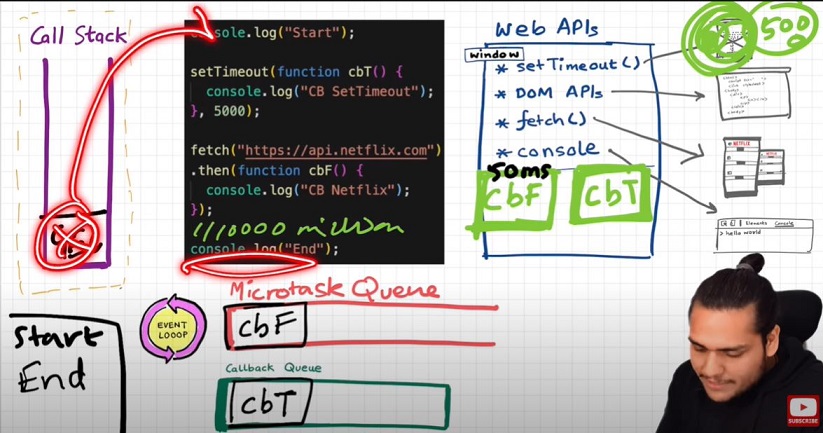 Call Stack
console.log("Start");
setTimeout(function cbT() {
console.log("CB SetTimeout");
}, 5000);
fetch("https://api.netflix.com")
.then(function cbF() {
console.log("CB Netflix");
});
// 10000 million
console.log("End");
Web APIs
window
* setTimeout()
* DOM APIs
* fetch()
* console
50ms
cbF
cbT
500
NETFLIX
Elements Console
> hello world
Start
End
EVENT
LOOOP
Microtask Queue
cbF
Callback Queue
cbT
SUBSCRIBE